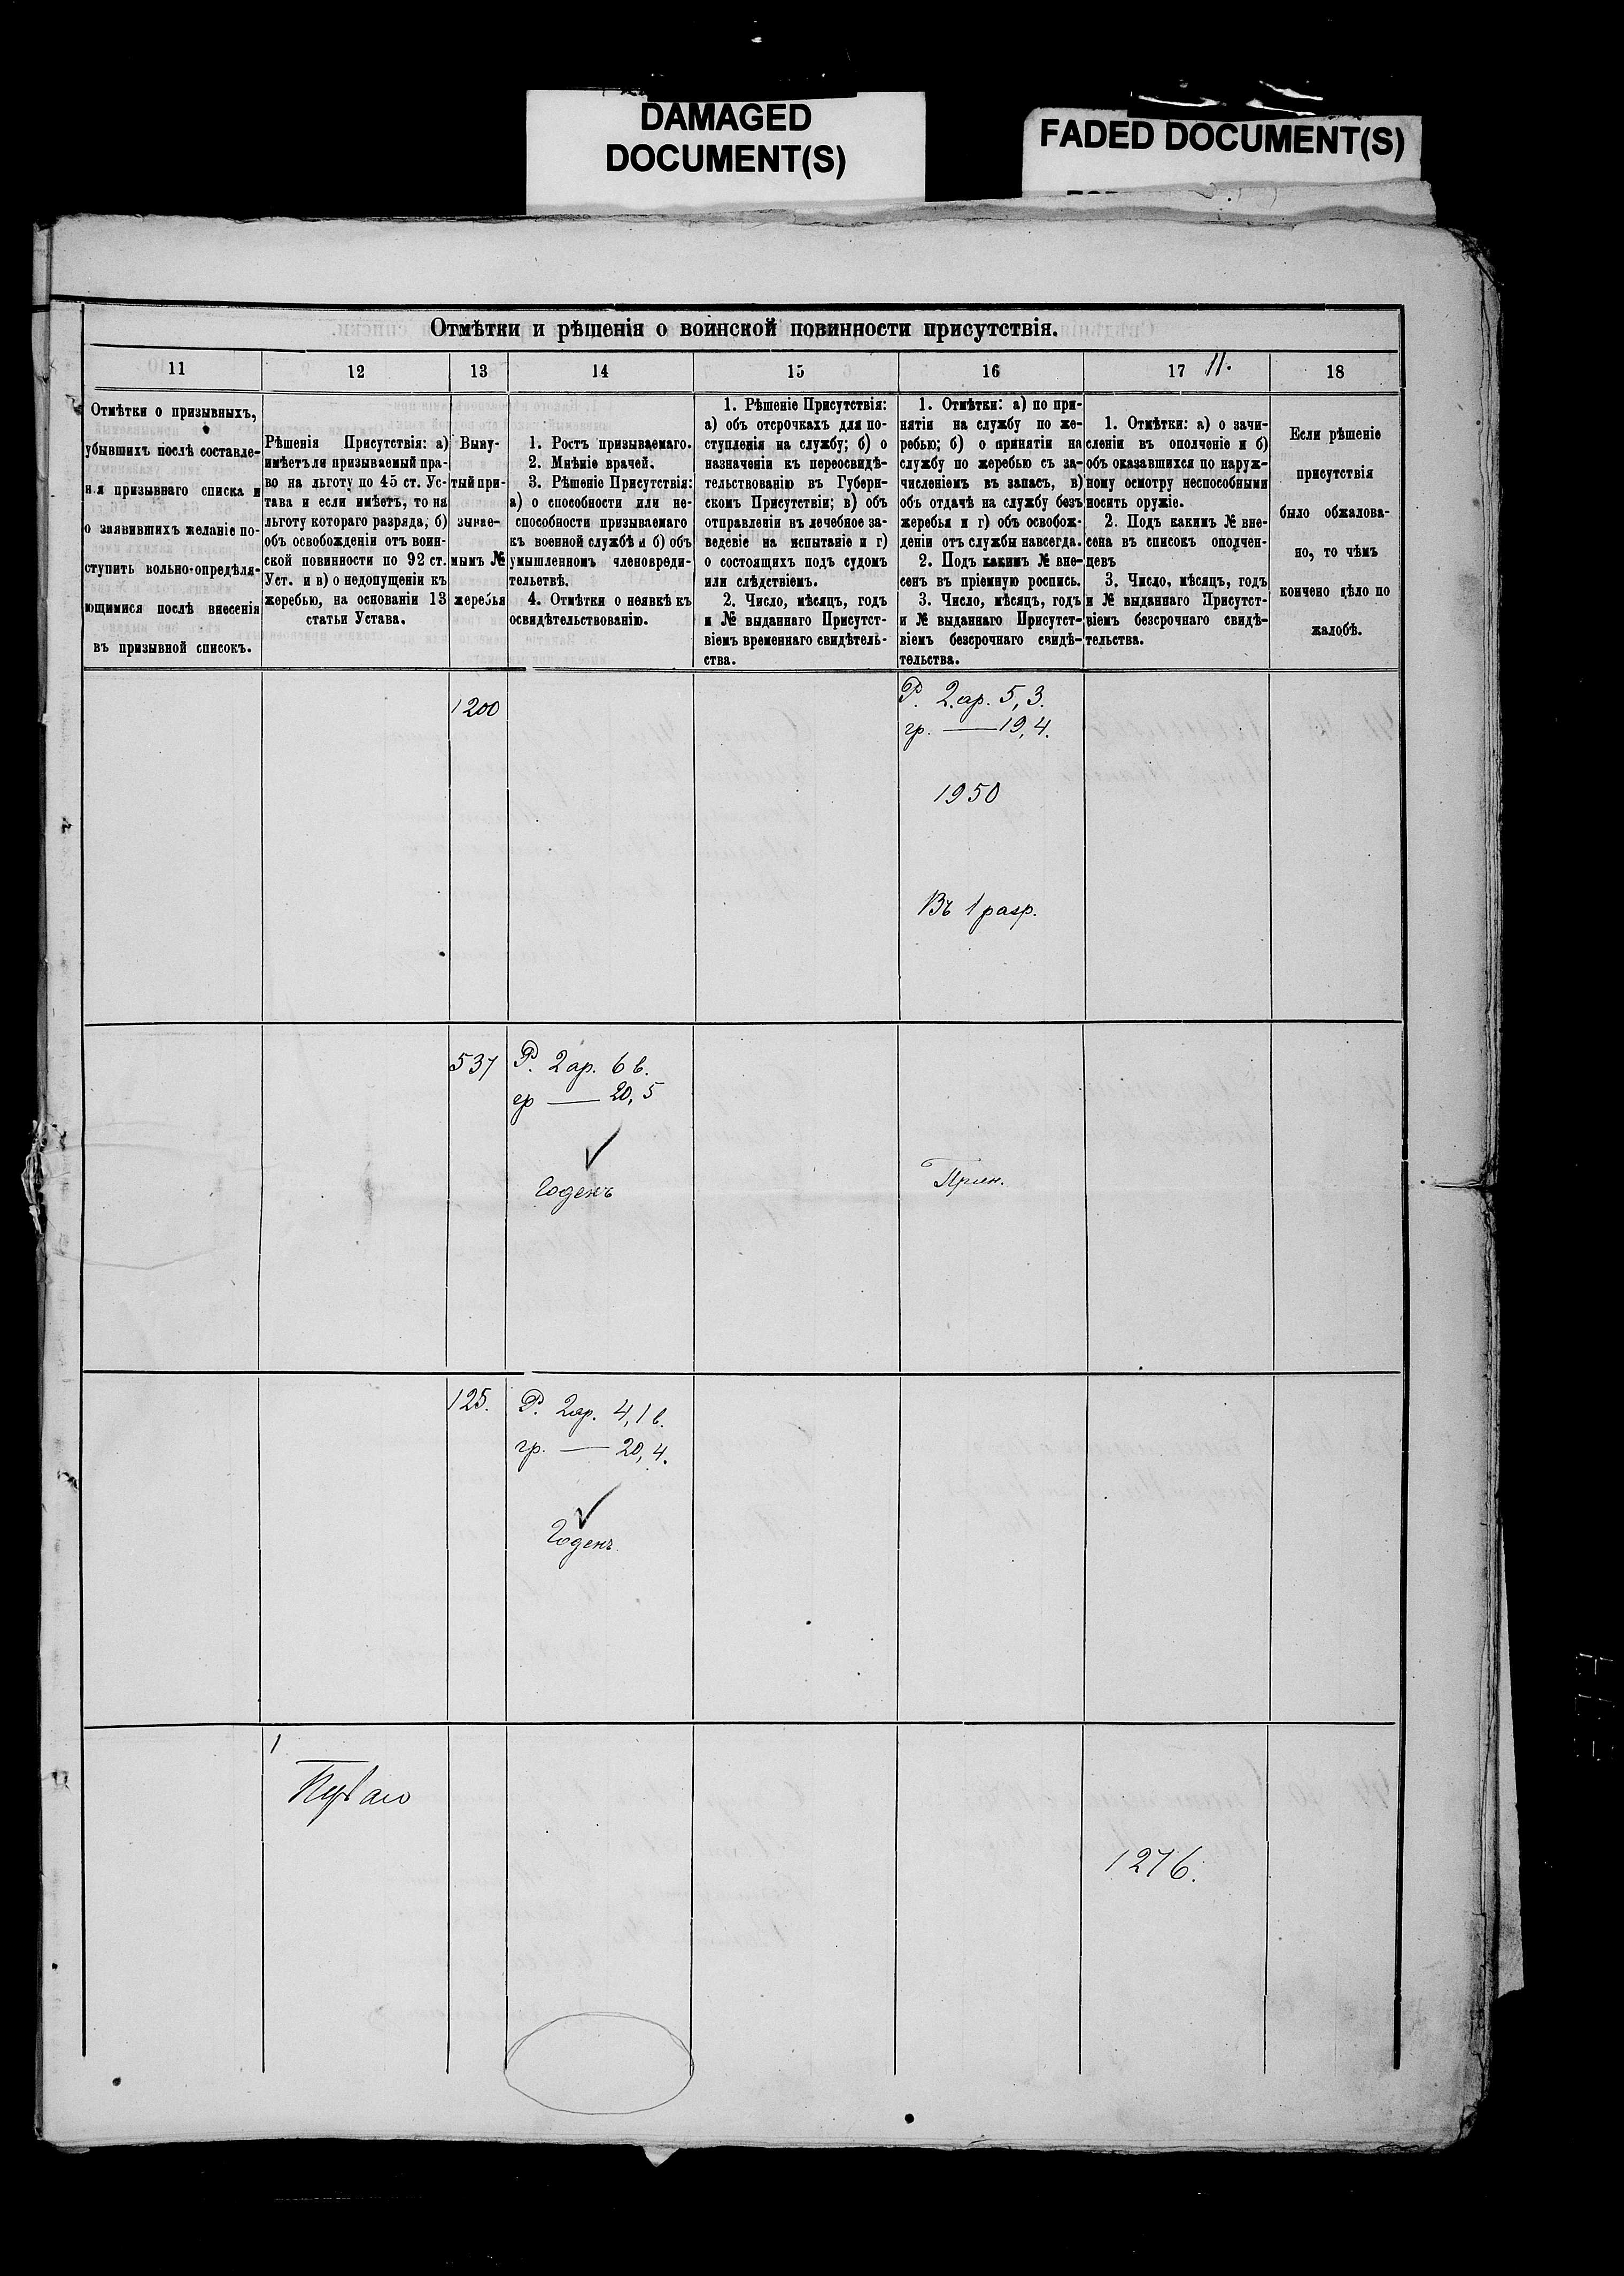 DAMAGED
DOCUMENT(S)
FADED DOCUMENT(S)
Отмѣтки и рѣшенія о воинской повинности присутствія.
11
12
13
14
15
16
17
11.
18
Отмѣтки о призывныхъ,
убывшихъ послѣ составле-
н.я призывнаго списка и
о заявившихъ желаніе по-
ступить вольно-опредѣля-
ющимися послѣ внесенія
въ призывной списокъ.
Рѣшенія Присутствія: а)
имѣетъли призываемый пра-
во на льготу по 45 ст. Ус-
тава и если имѣетъ, то на
льготу котораго разряда, б)
объ освобожденіи отъ воин-
ской повинности по 92 ст.
Уст. и в) о недопущеніи къ
жеребью, на основаніи 13
статьи Устава.
Выну-
тый при-
зывае-
мымъ №
жеребья
1. Ростъ призываемаго.
2. Мнѣніе врачей.
3. Рѣшеніе Присутствія:
а) о способности или не-
способности призываемаго
къ военной службѣ и б) объ
умышленномъ членовреди-
тельетвѣ.
4. Отмѣтки о неявкѣ къ
освидѣтельствованію.
1. Рѣшеніе Присутствія:
а) объ отсрочкахъ для по-
ступленія на службу; б) о
назначеніи къ переосвидѣ-
тельствованію въ Губерн-
скомъ Присутствіи; в) объ
отправленіи въ лечебное за-
ведевіе на испытаніе и г)
о состоящихъ подъ судомъ
или слѣдствіемъ.
2. Число, мѣсяцъ, годъ
и № выданнаго Присутст-
віемъ временнаго свидѣтель-
ства.
1. Отмѣтки: а) по при-
нятіи на службу по же-
ребью; б) о принятіи на
службу по жеребью съ за-
численіемъ въ запасъ, в)
объ отдачѣ на службу безъ
жеребья и г) объ освобож-
деніи отъ службы навсегда.
2. Подъ какимъ № вне-
сенъ въ пріемную роспись.
3. Число, мѣсяцъ, годъ
и № выданнаго Присутст-
віемъ безсрочнаго свидѣ-
тельства.
1. Отмѣтки: а) о зачи-
сленіи въ ополченіе и б)
объ оказавшихся по наруж-
ному осмотру неспособными
носить оружіе.
2. Подъ какимъ № вне-
сена въ списокъ ополчен-
цевъ
3. Число, мѣсяцъ, годъ
и № выданнаго Присутст-
віемъ безсрочнаго свидѣ-
тельства.
Если рѣшеніе
присутствія
было обжалова-
но, то чѣмъ
кончено дѣло по
жалобѣ.
1200
Р. 2.ар. 5,3.
гр. — 19,4.
1950
Въ 1 разр.
537
Р. 2 ар. 6 в.
гр — 20,5
Годенъ
Прин.
125.
Р. 2ар. 4,1 в.
гр. — 20,4.
Годенъ
1
1276.